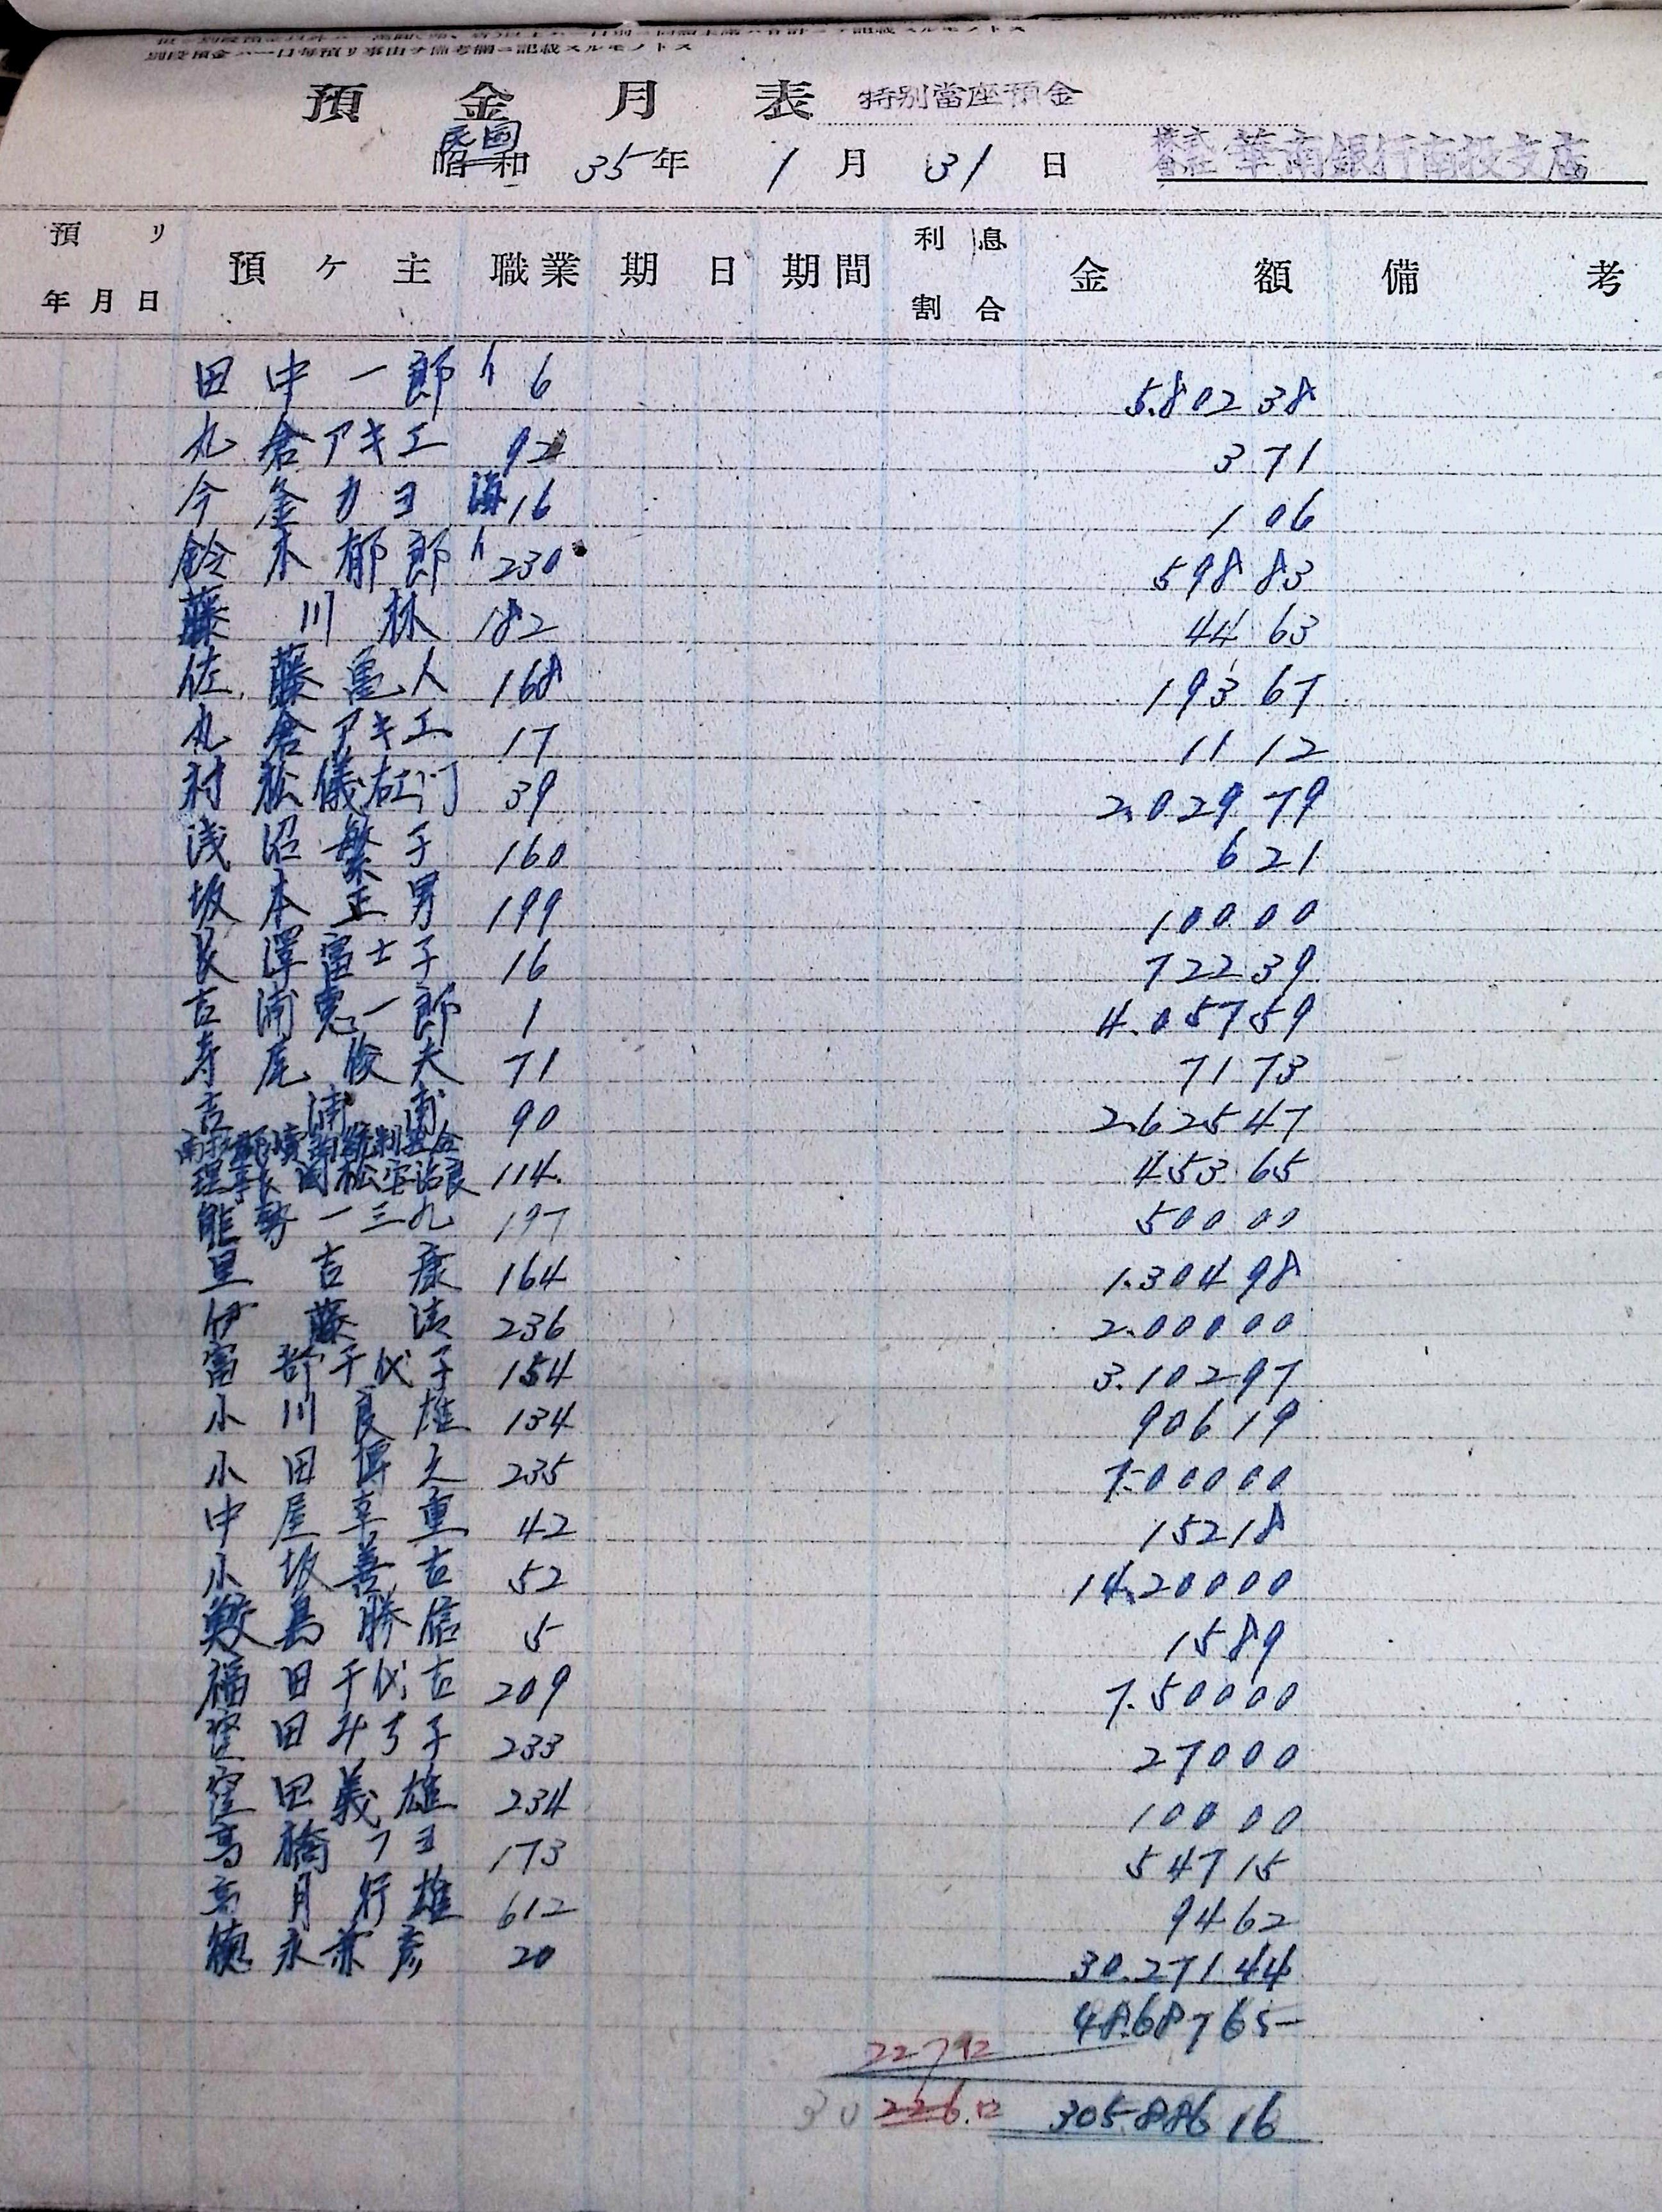 別段預金ハ一口毎預リ事由ヲ備考欄ニ記載スルモノトス
預金月表 特別當座預金
民国
昭和 35年 1月31日 株式會社 華南銀行南投支店
預リ年月日 預ケ主 職業 期日 期間 利息割合 金額 備考
田中一郎 イ 6 5.802 38
丸倉アキエ 92 3 71
今金カヨ 海16 1 06
鈴木郁郎 イ 230 598 83
藤川林 182 44 63
佐藤亀人 168 193 67
丸倉アキエ 17 11 12
村松儀右ヱ门 39 2.029 79
浅沼繁子 160 6 21
坂本正男 199 100 00
良澤富士子 16 722 39
吉浦寛一郎 1 4.057 59
寺尾俊夫 71 71 73
吉浦浦 90 2.625 47
理事長 国松安治良 114. 453 65
能勢一三九 197 500 00
里吉康 164 1.304 98
伊藤清 236 2.000 00
富部千代子 154 3.102 97
小川良雄 134 906 19
小田博久 235 7.000 00
中屋幸重 42 152 18
小坂善吉 52 14.200 00
鮫島勝信 5 15 89
福田千代吉 209 7.500 00
窪田みち子 233 270 00
窪田義雄 234 100 00
高橋フヨ 173 547 15
高月行雄 612 94 62
徳永兼彦 20 30.271 44
48.687 65
227 12
30 226.12 305.886 16